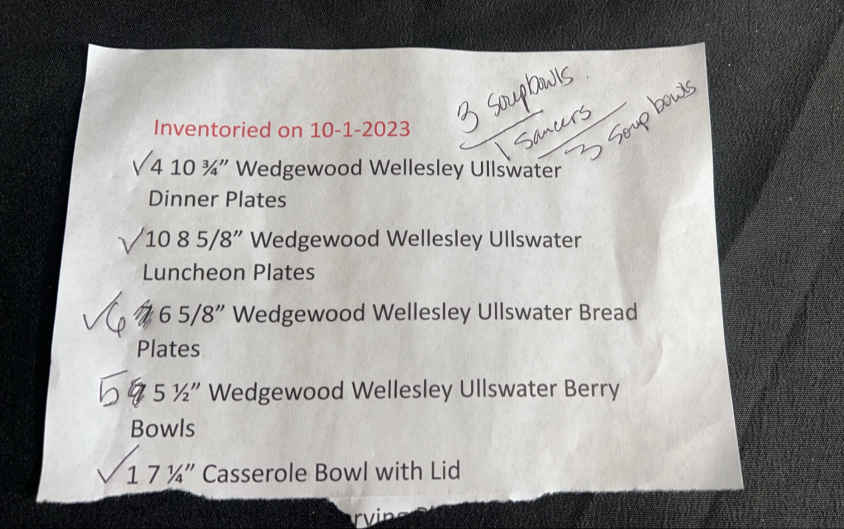 3 Soup bowls
1 Saucers
3 Soup bowls
Inventoried on 10-1-2023
√4 10 ¾” Wedgewood Wellesley Ullswater
Dinner Plates
√10 8 5/8” Wedgewood Wellesley Ullswater
Luncheon Plates
√6 6 5/8” Wedgewood Wellesley Ullswater Bread
Plates
5 5 ½” Wedgewood Wellesley Ullswater Berry
Bowls
√1 7 ¼” Casserole Bowl with Lid